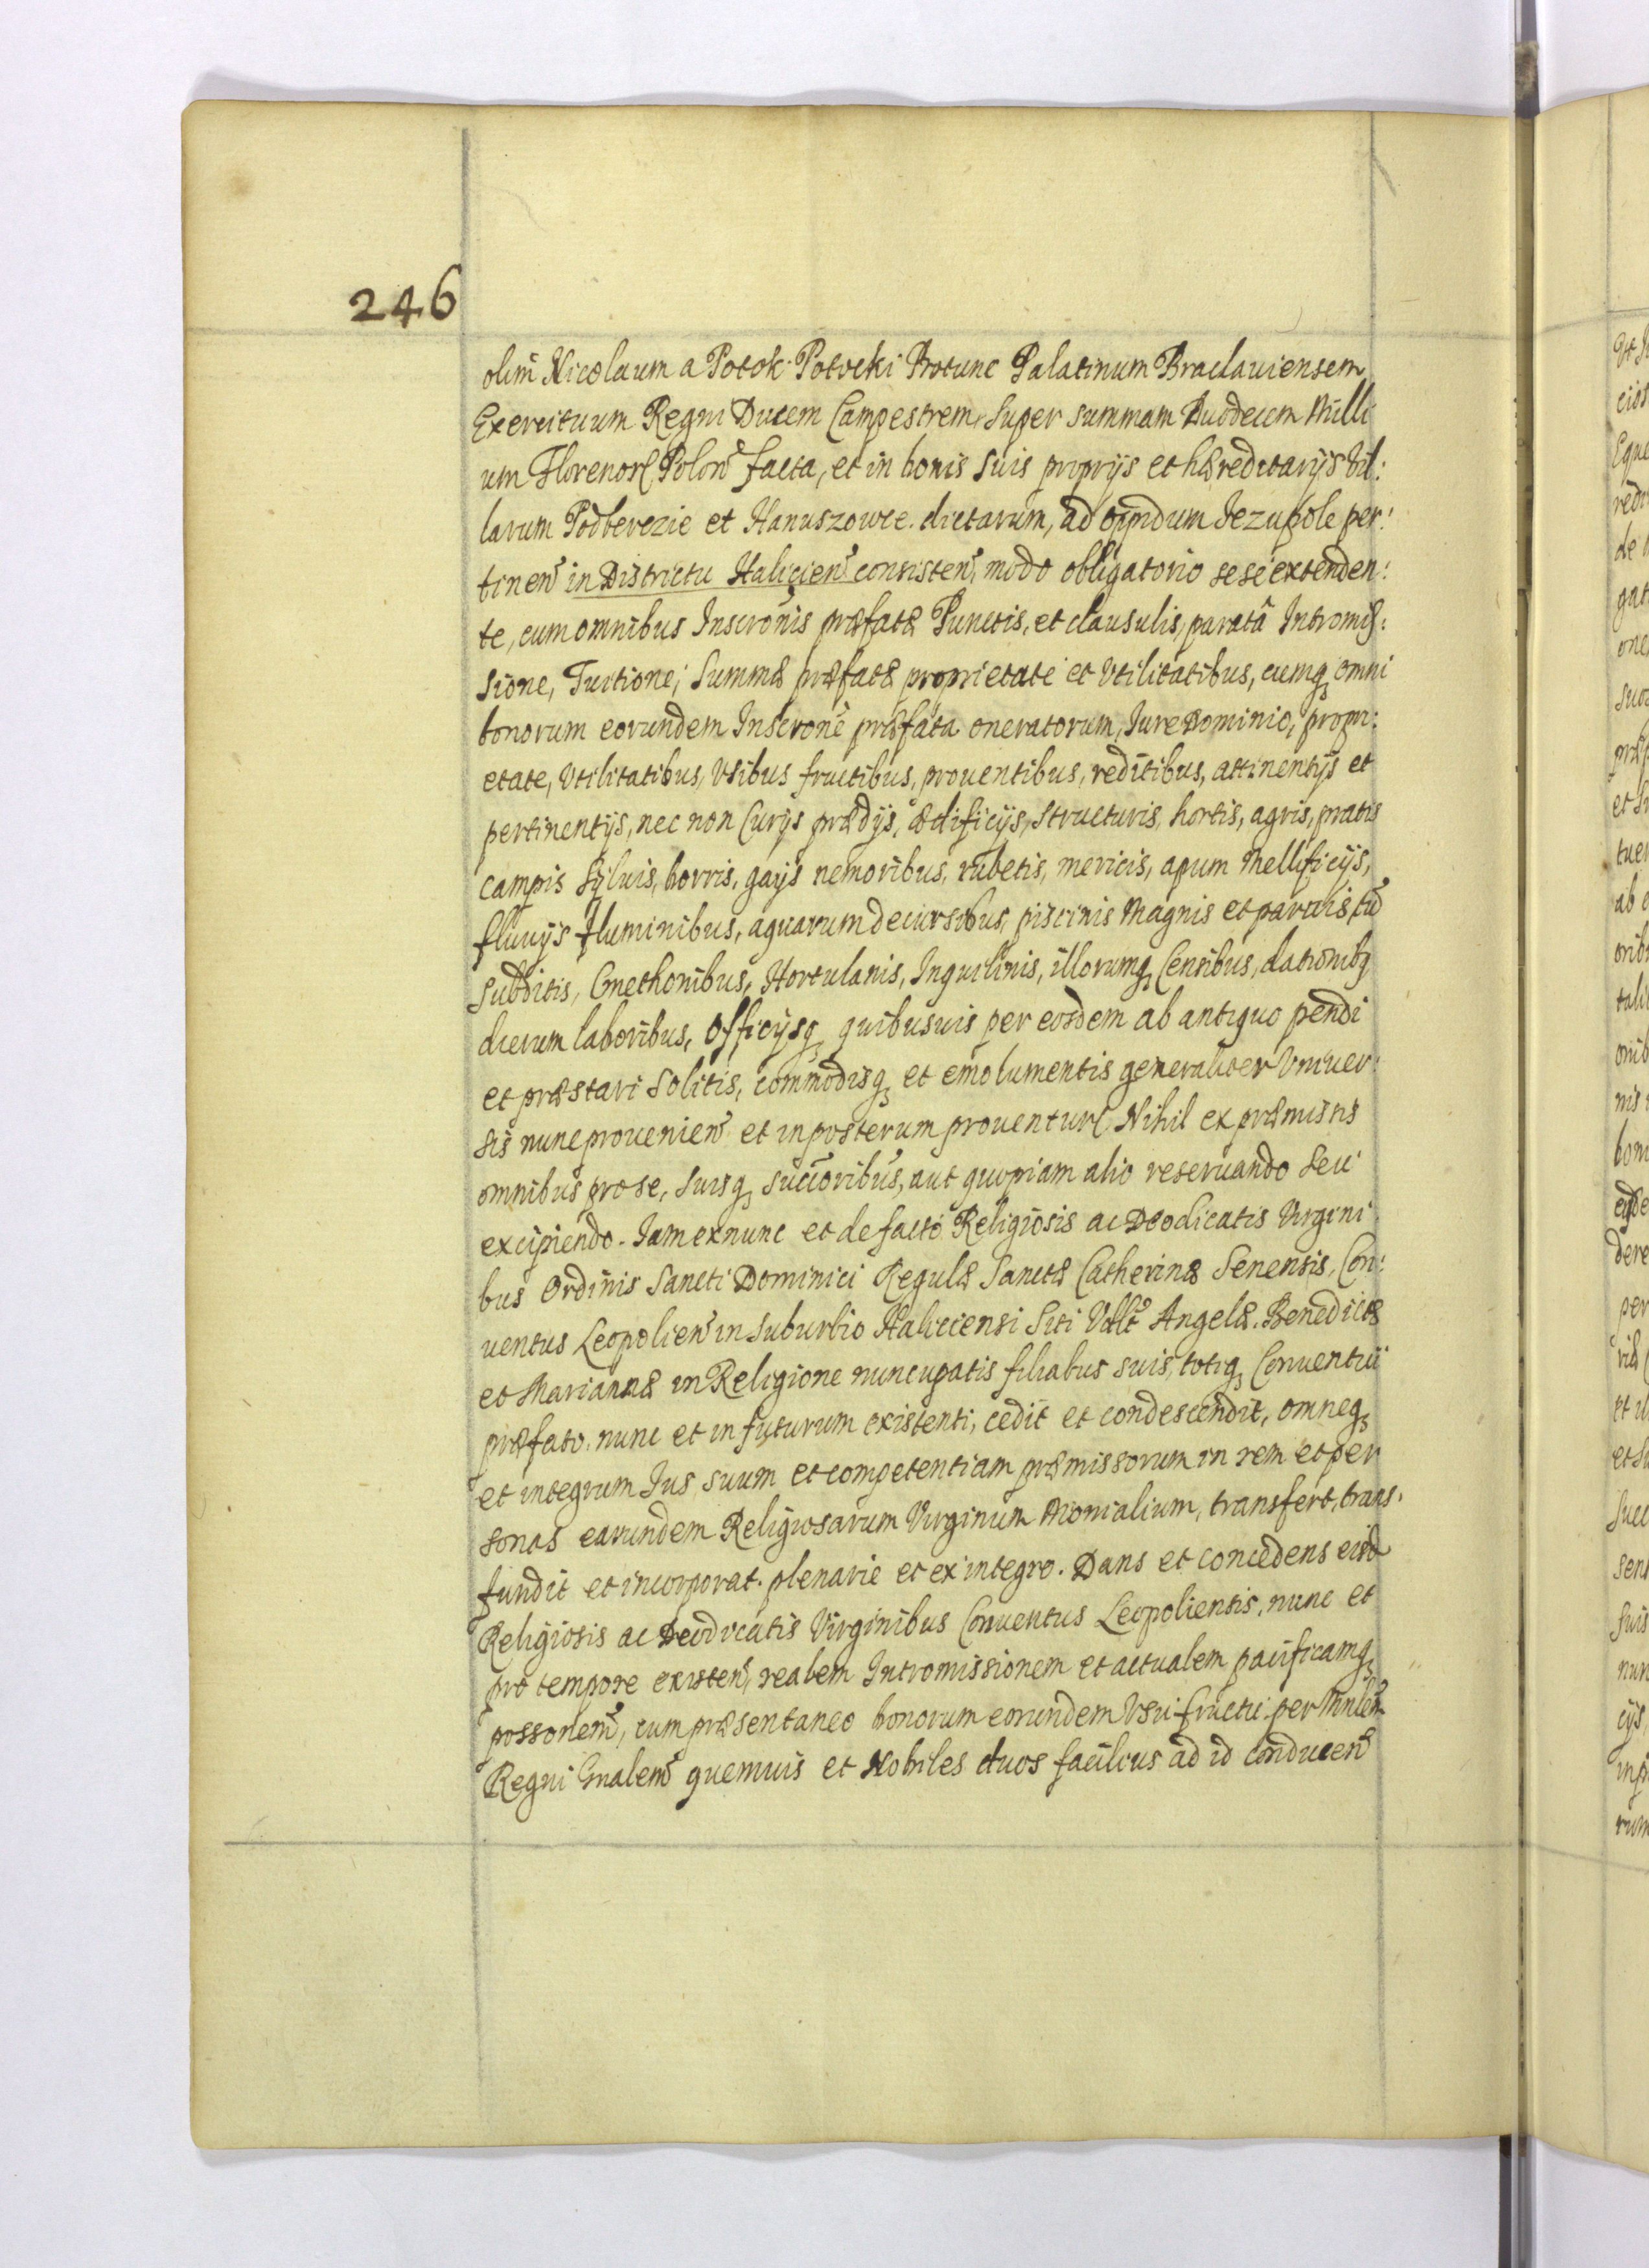 246
olim Nicolaum a Potok Potocki Protunc Palatinum Braclauiensem
Exercituum Regni Ducem Campestrem, Super summam Duodecem Milli
um Florenor Polon facta, et in bonis suis proprijs et hæreditarijs Vil:
larum Podberezie et Hanuszowce dictarum, ad oppidum Jezupole per:
tinen in Districtu Halicien consisten, modo obligatorio sese extenden:
te, cum omnibus Inscronis præfatæ Punctis, et clausulis, paratâ Intromis:
sione, Tuitione, Summæ præfatæ proprietate et Vtilitatibus, cumq omni
bonorum eorundem Inscrone præfata oneratorum, Jure Dominio, propri:
etate, Vtilitatibus, Vsibus fructibus, prouentibus, reditibus, attinentijs et
pertinentijs, nec non Curijs prædijs, ædificijs, structuris, hortis, agris, pratis
campis Syluis, borris, gays nemoribus, rubetis, mericis, apum Mellificijs,
fluuijs fluminibus, aquarum decursibus, piscinis Magnis et paruis, tū
Subditis, Cmethonibus, Hortulanis, Inquilinis, illorumq Censibus, dationibq
dierum laboribus, Officijsq quibusuis per eosdem ab antiquo pendi
et præstari Solitis, commodisq et emolumentis generaliter Vniuer:
sis nunc prouenien et in posterum prouentur Nihil ex præmissis
omnibus pro se, suisq succoribus, aut quopiam alio reseruando Seu
excipiendo. Jam ex nunc et de facto Religiosis ac Deodicatis Virgini
bus Ordinis Sancti Dominici Regulæ Sanctæ Catherinæ Senensis, Con:
uentus Leopolien in Suburbio Haliciensi Siti Vdlt Angelæ Benedictæ
et Mariannæ in Religione nuncupatis filiabus suis, totiq Conuentui
præfato nunc et in futurum existenti, cedit et condescendit, omneq
et integrum Jus suum et competentiam præmissorum in rem et per
sonas earundem Religiosarum Virginum Monialium, transfert, trans:
fundit et incorporat plenarie et ex integro. Dans et concedens eisd
Religiosis ac Deodicatis Virginibus Conuentus Leopoliensis, nunc et
pro tempore existen, realem Intromissionem et actualem pacificamq
possonem, cum præsentaneo bonorum eorundem Vsu fructu per Mnlem
Regni Gnalem quemuis et Nobiles duos facilius ad id conducen